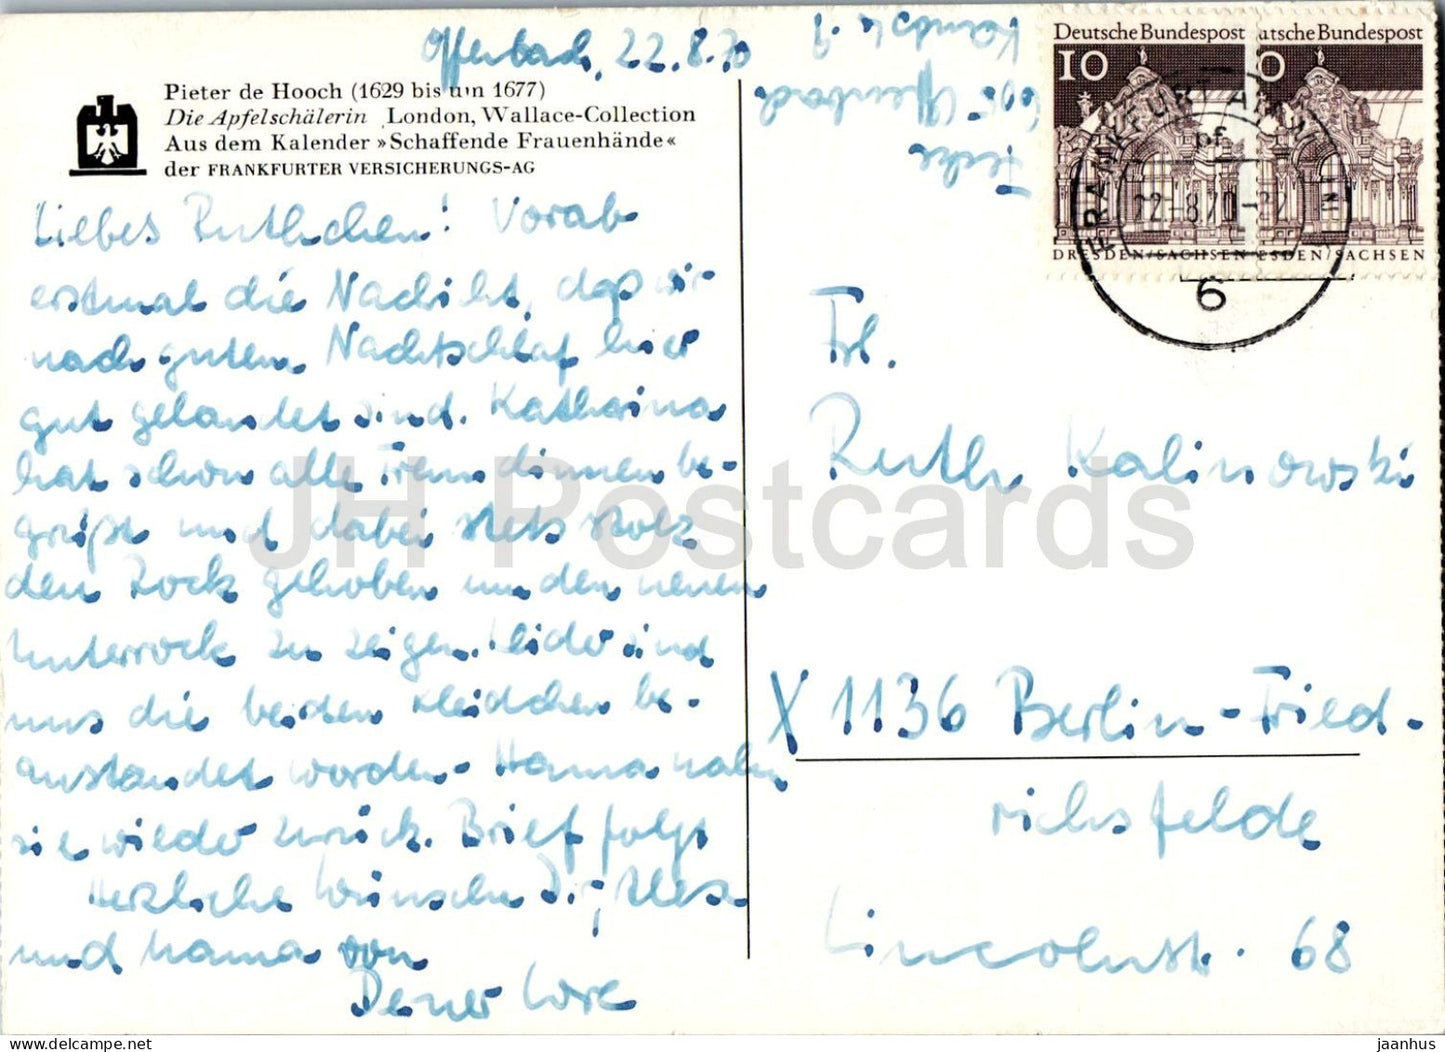 Offenbach, 22.8.70
Pieter de Hooch (1629 bis um 1677)
Die Apfelschälerin London, Wallace-Collection
Aus dem Kalender »Schaffende Frauenhände«
der FRANKFURTER VERSICHERUNGS-AG
Liebes Ruthchen! Vorab
erstmal die Nachricht, daß wir
nach gutem Nachtschlaf hier
gut gelandet sind. Katharina
hat schon alle Freundinnen be-
grüßt und dabei stets stolz
den Rock gehoben um den neuen
Unterrock zu zeigen. Leider sind
uns die beiden Kleidchen be-
anstandet worden - Mama nahm
sie wieder zurück. Brief folgt
Herzliche Wünsche Dir,
und Mama von
Deiner Lore
605 Offenbach
Deutsche Bundespost
10
DRESDEN/SACHSEN
utsche Bundespost
0
ESDEN/SACHSEN
FRANKFURT AM MAIN
22.-8.70
6
Frl.
Ruth Kalinowski
X 1136 Berlin-Fried-
richsfelde
Lincolnstr. 68
JH Postcards
jaanhus